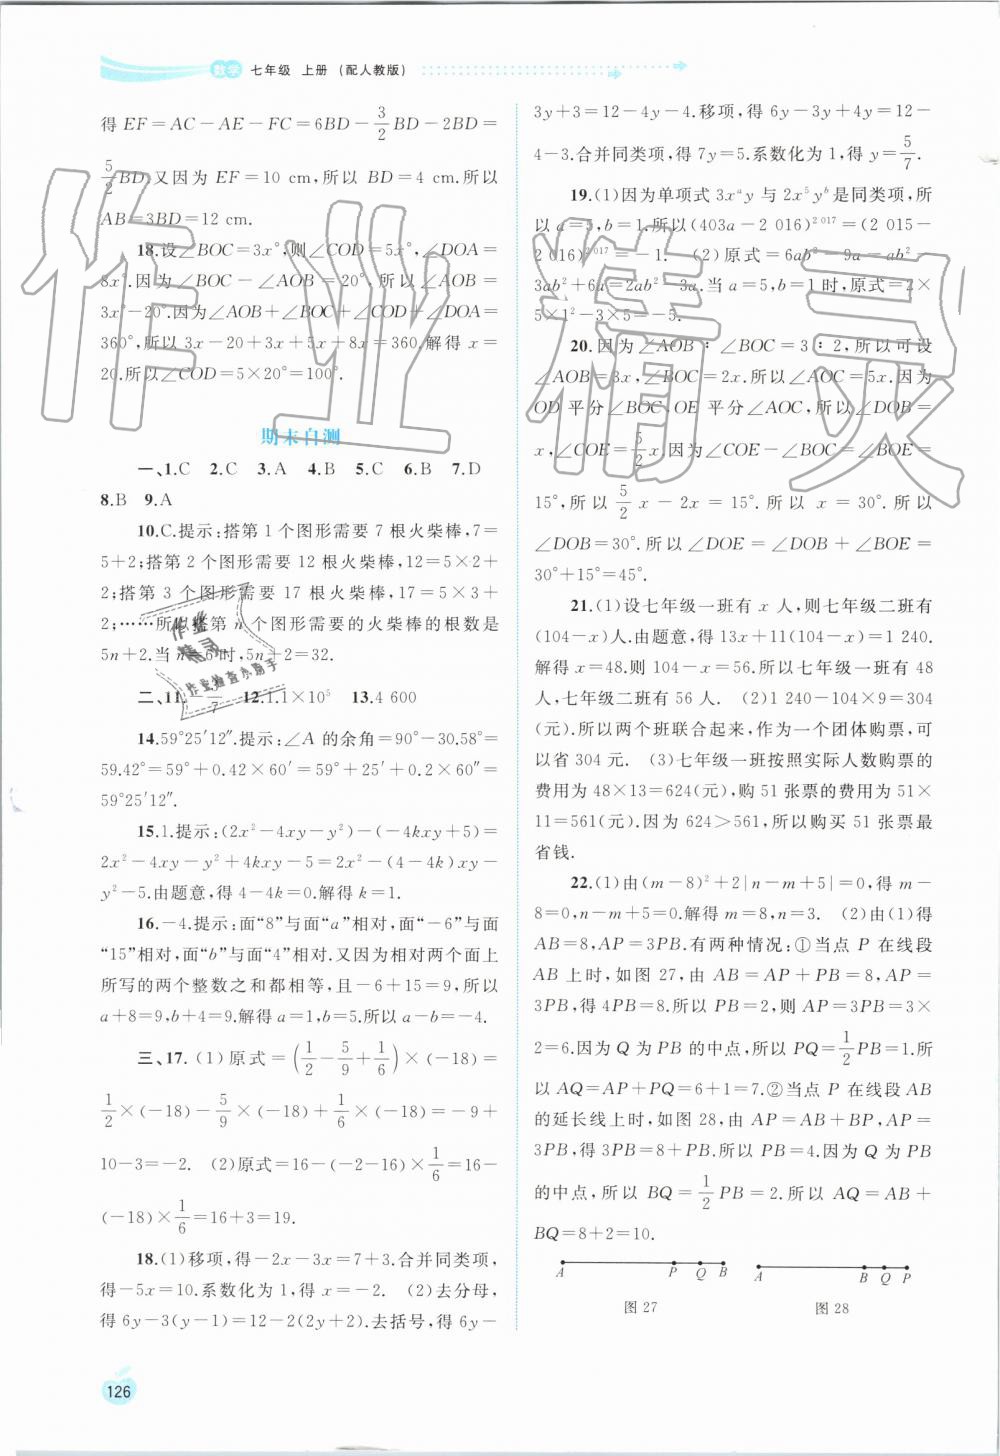 数学 七年级 上册 (配人教版)
得 EF=AC-AE-FC=6BD-3/2BD-2BD=
5/2BD.又因为 EF=10 cm,所以 BD=4 cm.所以
AB=3BD=12 cm.
18.设∠BOC=3x°,则∠COD=5x°,∠DOA=
8x°.因为∠BOC-∠AOB=20°,所以∠AOB=
3x°-20°.因为∠AOB+∠BOC+∠COD+∠DOA=
360°,所以 3x-20+3x+5x+8x=360.解得 x=
20.所以∠COD=5×20°=100°.
期末自测
一、1.C 2.C 3.A 4.B 5.C 6.B 7.D
8.B 9.A
10.C.提示:搭第 1 个图形需要 7 根火柴棒,7=
5+2;搭第 2 个图形需要 12 根火柴棒,12=5×2+
2;搭第 3 个图形需要 17 根火柴棒,17=5×3+
2;……所以搭第 n 个图形需要的火柴棒的根数是
5n+2.当 n=6 时,5n+2=32.
二、11. 12.1.1×10⁵ 13.4 600
14.59°25′12″.提示:∠A 的余角=90°-30.58°=
59.42°=59°+0.42×60′=59°+25′+0.2×60″=
59°25′12″.
15.1.提示:(2x²-4xy-y²)-(-4kxy+5)=
2x²-4xy-y²+4kxy-5=2x²-(4-4k)xy-
y²-5.由题意,得 4-4k=0.解得 k=1.
16.-4.提示:面“8”与面“a”相对,面“-6”与面
“15”相对,面“b”与面“4”相对.又因为相对两个面上
所写的两个整数之和都相等,且-6+15=9,所以
a+8=9,b+4=9.解得 a=1,b=5.所以 a-b=-4.
三、17. (1)原式=(1/2-5/9+1/6)×(-18)=
1/2×(-18)-5/9×(-18)+1/6×(-18)=-9+
10-3=-2. (2)原式=16-(-2-16)×1/6=16-
(-18)×1/6=16+3=19.
18.(1)移项,得-2x-3x=7+3.合并同类项,
得-5x=10.系数化为 1,得 x=-2. (2)去分母,
得 6y-3(y-1)=12-2(2y+2).去括号,得 6y-
3y+3=12-4y-4.移项,得 6y-3y+4y=12-
4-3.合并同类项,得 7y=5.系数化为 1,得 y=5/7.
19.(1)因为单项式 3xᵃy 与 2x⁵yᵇ是同类项,所
以 a=5,b=1.所以(403a-2 016)²⁰¹⁷=(2 015-
2 016)²⁰¹⁷=-1. (2)原式=6ab²-9a-ab²-
3ab²+6a=2ab²-3a.当 a=5,b=1 时,原式=2×
5×1²-3×5=-5.
20.因为∠AOB∶∠BOC=3∶2,所以可设
∠AOB=3x,∠BOC=2x.所以∠AOC=5x.因为
OD 平分∠BOC,OE 平分∠AOC,所以∠DOB=
x,∠COE=5/2x.因为∠COE-∠BOC=∠BOE=
15°,所以 5/2x-2x=15°.所以 x=30°.所以
∠DOB=30°.所以∠DOE=∠DOB+∠BOE=
30°+15°=45°.
21.(1)设七年级一班有 x 人,则七年级二班有
(104-x)人.由题意,得 13x+11(104-x)=1 240.
解得 x=48.则 104-x=56.所以七年级一班有 48
人,七年级二班有 56 人. (2)1 240-104×9=304
(元).所以两个班联合起来,作为一个团体购票,可
以省 304 元. (3)七年级一班按照实际人数购票的
费用为 48×13=624(元),购 51 张票的费用为 51×
11=561(元).因为 624>561,所以购买 51 张票最
省钱.
22.(1)由(m-8)²+2|n-m+5|=0,得 m-
8=0,n-m+5=0.解得 m=8,n=3. (2)由(1)得
AB=8,AP=3PB.有两种情况:①当点 P 在线段
AB 上时,如图 27,由 AB=AP+PB=8,AP=
3PB,得 4PB=8.所以 PB=2,则 AP=3PB=3×
2=6.因为 Q 为 PB 的中点,所以 PQ=1/2PB=1.所
以 AQ=AP+PQ=6+1=7.②当点 P 在线段 AB
的延长线上时,如图 28,由 AP=AB+BP,AP=
3PB,得 3PB=8+PB.所以 PB=4.因为 Q 为 PB
的中点,所以 BQ=1/2PB=2.所以 AQ=AB+
BQ=8+2=10.
A P Q B A B Q P
图 27 图 28
126
作业精灵
作业
精灵
作业检查小助手